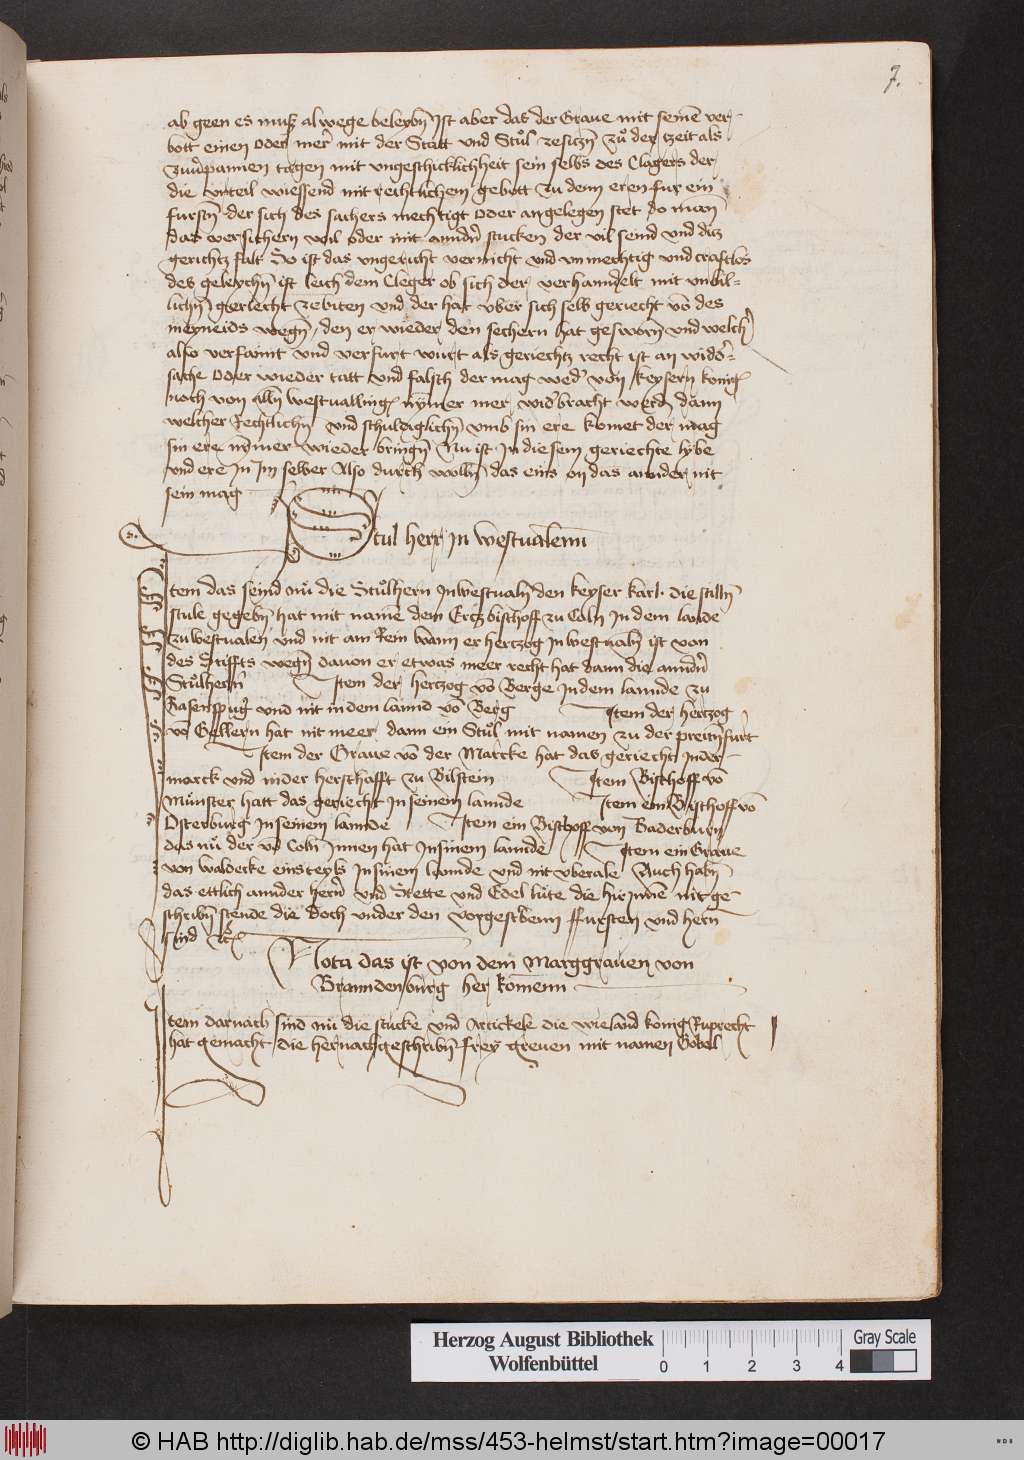 7.
ab geen es muß alwege beleybn̄ Ist aber das der Graue mit seinē ver-
bott einen oder mer̄ mit der Statt vnd Stůl zesiczn̄ zů der czeit als
tagen mit vngeschicklichheit sein selbs des Clagers der
die vrteil wiessend mit rechtlichem gebott zu dem eren fur ein
fursn̄ der sich des sachers mechtigt oder angelegen stet do man
das versichern wil oder mit anndn̄ stucken der vil seind vnd diz
gerichtz falt So ist das vngericht vernicht vnd vnmechtig vnd craftlos
des geleychn̄ ist leich dem Cleger ob sich der verhanndelt mit vnbil-
lichn̄ gerlecht zebiten vnd der hat vber sich selb geriecht vō des
meyneids wegn̄ den er wieder den sechern hat gesworn̄ vnd welch̄
also verfaimt vnd verfurt wurt als geriechtz recht ist an widd̄-
sache oder wieder tatt vnd falsch der mag wed̄ von keysern koniḡ
noch von alln̄ westuallingē nȳmer mer wid̄bracht werdn̄ dann
welcher Rechtlichn̄ vnd schuldiglichn̄ vmb sin ere komet der mag
sin ere nȳmer wieder bringn̄ Nu ist In diesem geriechte lybe
vnd ere In Im selber Also durch wolln̄ das eins on das annder nit
sein mag
Stul herr In westualenn
Item das seind nů die Stůlhern Inwestualn̄ den keyser karl die stilln̄
stule gegebn̄ hat mit namē dem Erczbischoff zu Coln In dem lande
zu westualen vnd nit am Rein wann er herczog Inwestualn̄ ist von
des Stiffts wegn̄ dauon er etwas meer recht hat dann die anndn̄
Stůlhern̄ Item der herczog vō Berge Indem lannde zu
Rasenspurg vnd nit indem lannd vō Berg Item der herczog
vō Gellern hat nit meer dann ein Stůl mit namen zu der preitnfurt
Item der Graue vō der Marcke hat das geriecht Inder
marck vnd inder herschafft zu Bilstein Item Bischoff vō
Mŭnster hatt das geriecht In seinem lannde Item ein Bischoff vō
Osterburg In seinem lannde Item ein Bischoff von Baderburn
das nů der vō Coln Innen hat In sinem lannde Item ein Graue
von waldecke einsteyls In sinem lannde vnd nit vberale Auch habn̄
das ettlich annder hern̄ vnd Stette vnd Edel lŭte die hirInnē nit ge-
schribn̄ stende die doch vnder den vorgestbenn ffursten vnd hern̄
sind
Nota das ist von dem Marggrauen von
Branndenburg her komenn
Item darnach sind nů die stucke vnd Artickele die wieland konig Ruprecht
hat gemacht die hernachgeschribn̄ frey greuen mit namen Gobel
Herzog August Bibliothek
Wolfenbüttel
0 1 2 3 4
Gray Scale
© HAB http://diglib.hab.de/mss/453-helmst/start.htm?image=00017